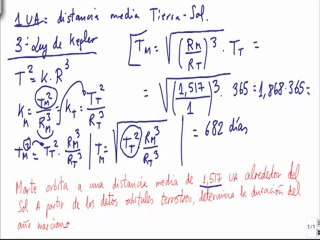 1 UA = distancia media Tierra-Sol.
3ª Ley de kepler
T² = k·R³
k_M = T_M²/R_M³ = k_T = T_T²/R_T³
T_M² = T_T² · R_M³/R_T³ | T_M = √(T_T² R_M³/R_T³)
T_M = √((R_M/R_T)³) · T_T =
= √((1,517/1)³) · 365 = 1,868·365 =
= 682 días
Marte orbita a una distancia media de 1,517 UA alrededor del
Sol A partir de los datos orbitales terrestres, determina la duración del
año marciano.
1/1